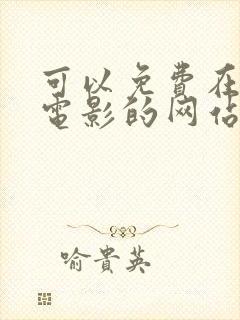 可以免费在
电影的网站
喻贵英